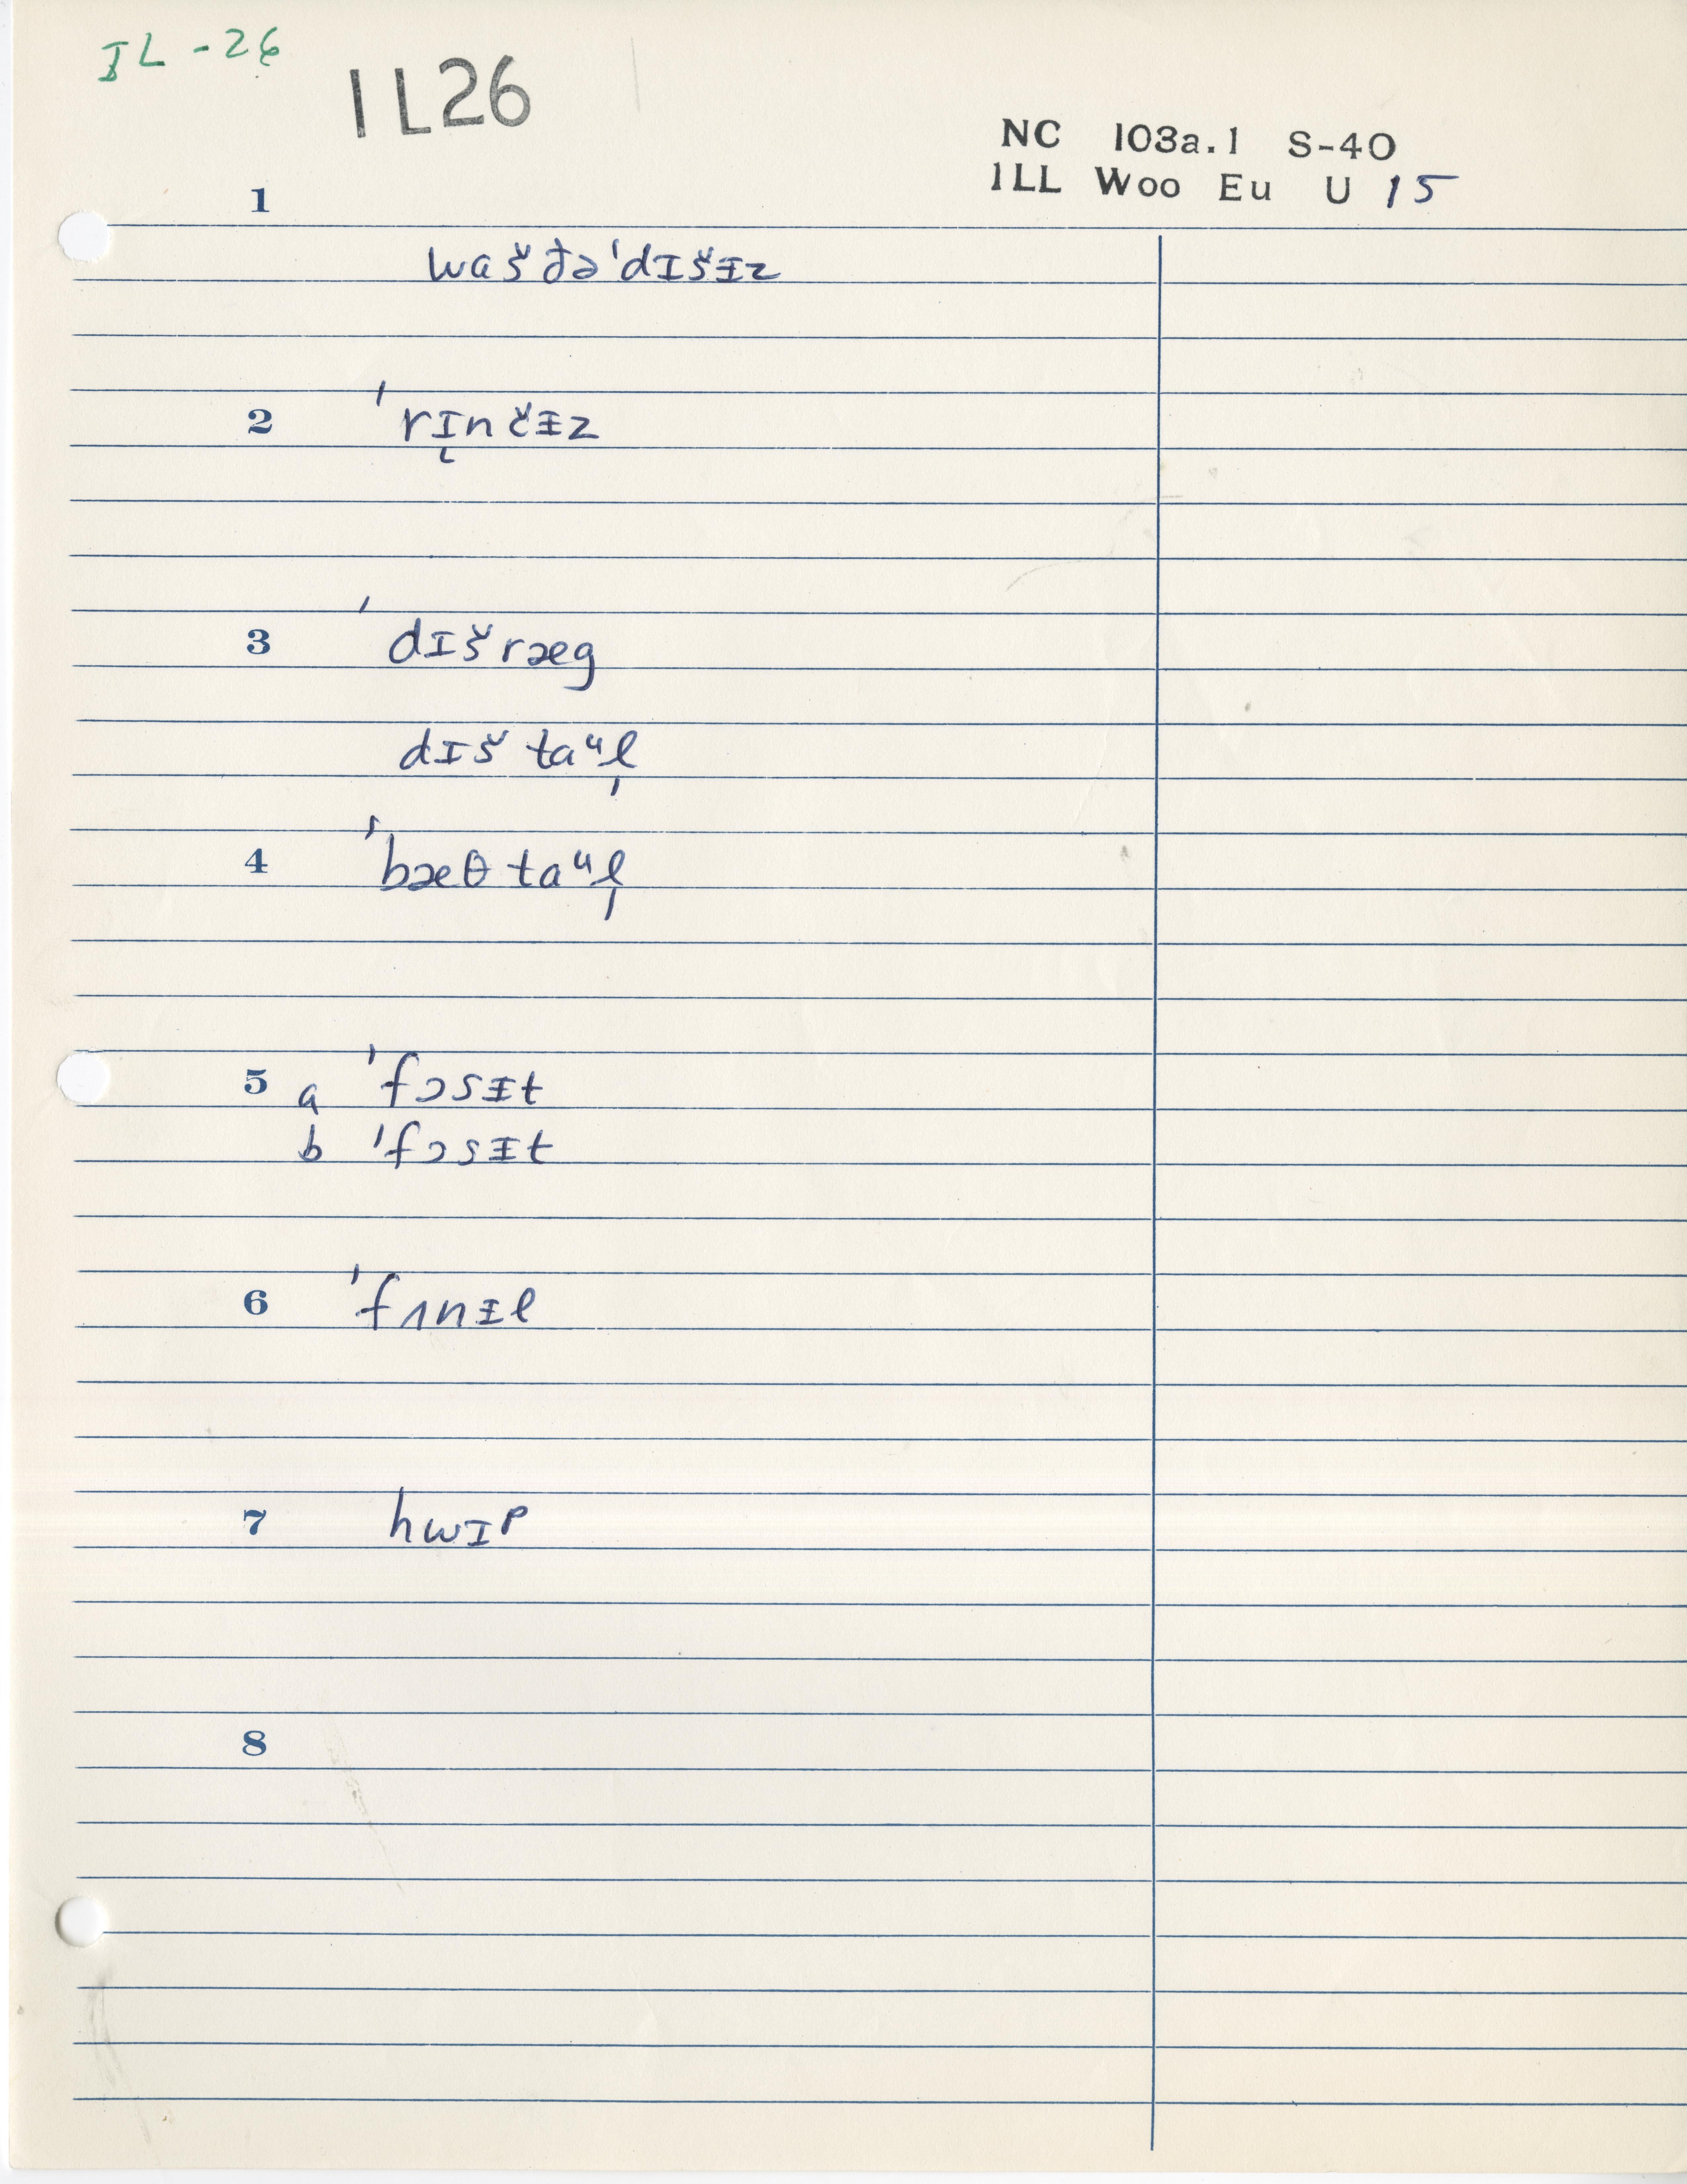 IL-26
IL26
NC 103a.1 S-40
ILL Woo Eu U 15
1
waš ðə ˈdɪšɪ̵z
2 ˈrɪ̨nčɪ̵z
3 ˈdɪšræg
dɪš taᵘl̩
4 ˈbæθ taᵘl̩
5 a ˈfɔsɪ̵t
b ˈfɔsɪ̵t
6 ˈfʌnɪ̵l
7 hwɪp
8